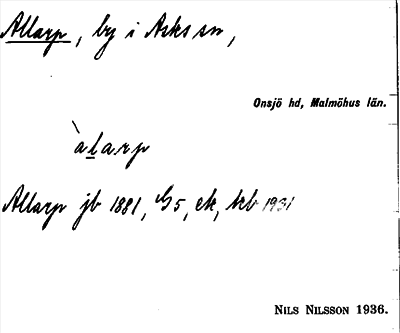 Allarp, by i Asks sn,
Onsjö hd, Malmöhus län.
`alarp
Allarp jb 1881, G5, ek, trb 1931
NILS NILSSON 1936.